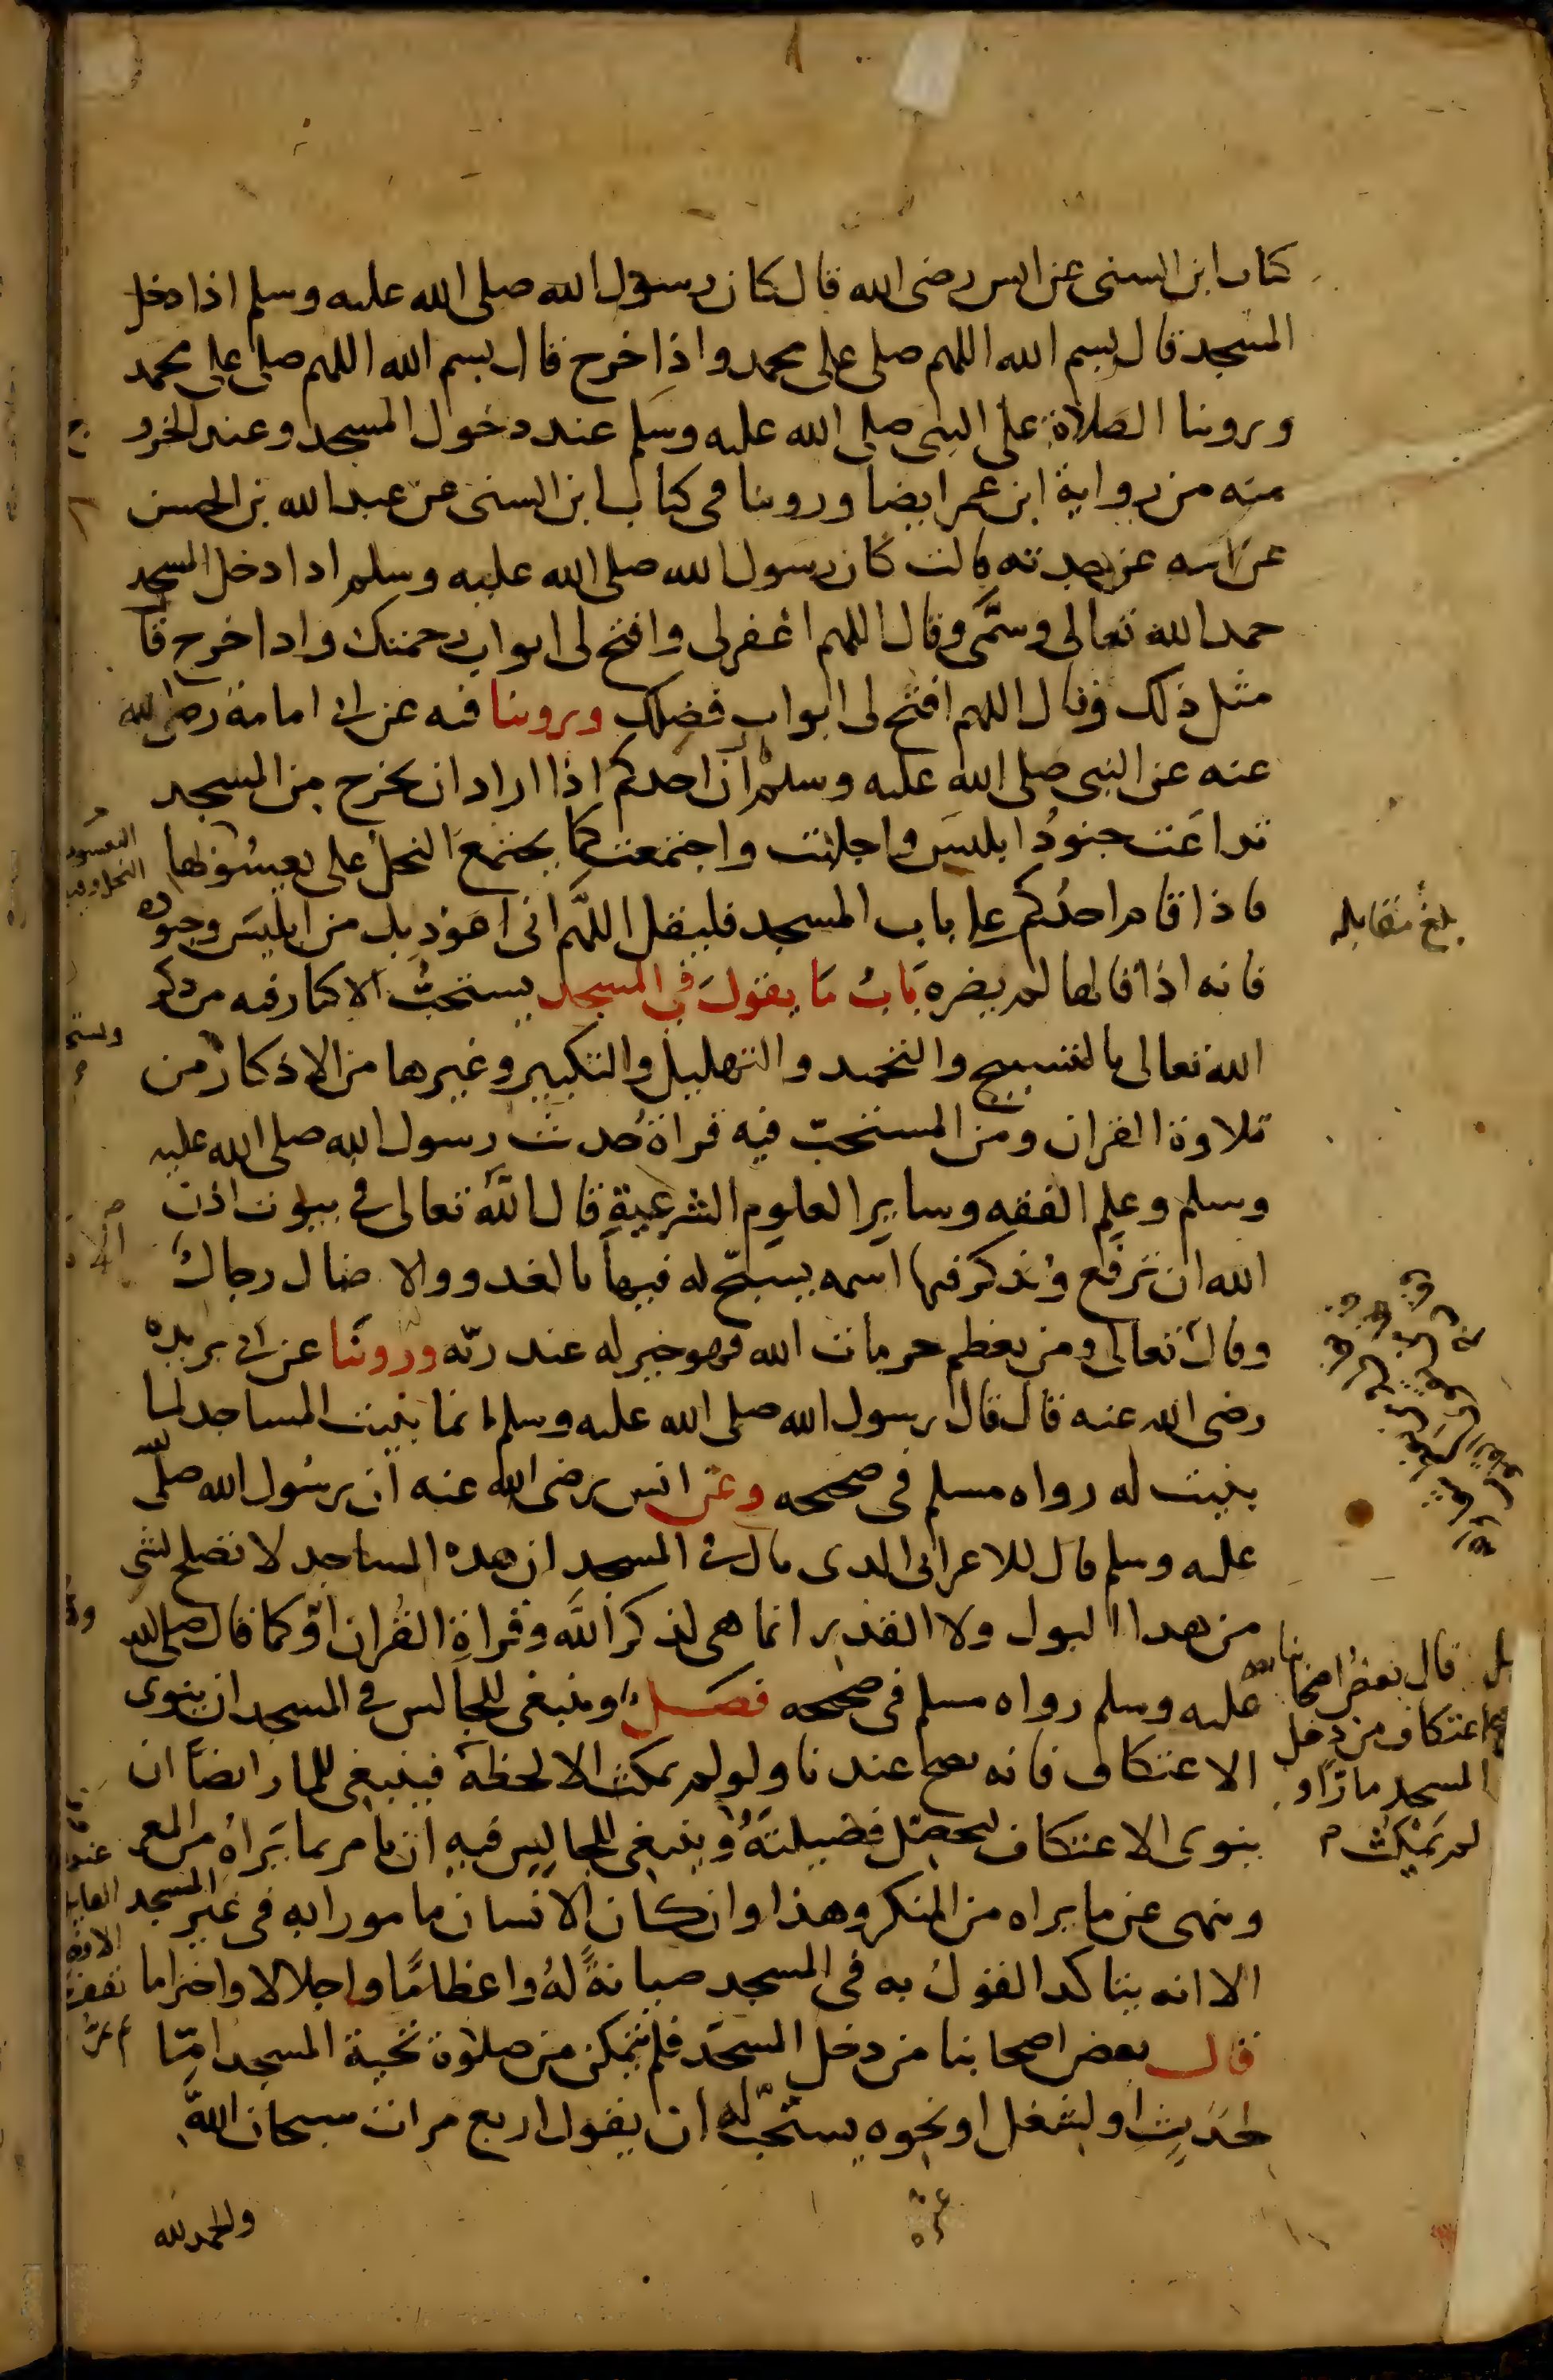 كتاب ابن السني عن انس رضى الله قال كان رسول الله صلى الله عليه وسلم اذا دخل
المسجد قال بسم الله اللهم صلى على محمد واذا خرج قال بسم الله اللهم صلى على محمد
وروينا الصلاة على النبى صلى الله عليه وسلم عند دخول المسجد وعند الخرو
ج
منه من رواية ابن عمر ايضا وروينا فى كتاب ابن السنى عن عبد الله بن الحسن
عن امه عن جدته قالت كان رسول الله صلى الله عليه وسلم اذا دخل المسجد
حمد الله تعالى وسمَّى وقال اللهم اغفر لى وافتح لى ابواب رحمتك واذا خرج قا
مثل ذلك وقال اللهم افتح لى ابواب فضلك وروينا فيه عن ابى امامة رضى الله
عنه عن النبى صلى الله عليه وسلم ان احدكم اذا اراد ان يخرج من المسجد
تداعت جنودُ ابليس واجلبت واجتمعت كما يجتمع النحل على يعسوبها
فاذا قام احدُكم على باب المسجد فليقل اللهم انى اعوذ بك من ابليس وجنوده
فانه اذا قالها لم يضره بابُ مَا يقولَ فى المسجد يستحبُّ الاكثار فيه من ذكر
الله تعالى بالتسبيح والتحميد والتهليل والتكبير وغيرها من الاذكار من
تلاوة القران ومن المستحبّ فيه قراة حديث رسول الله صلى الله عليه
وسلم وعلم الفقه وساير العلوم الشرعية قال الله تعالى فى بيوت اذن
الله ان ترفع ويذكر فيها اسمه يسبح له فيها بالغدو والاصال رجالٌ
وقال تعالى ومن يعظم حرمات الله فهو خير له عند ربّه وروينا عن ابى بريده
رضى الله عنه قال قال رسول الله صلى الله عليه وسلم انما بنيت المساجد لما
بنيت له رواه مسلم فى صحيحه وعن انس رضى الله عنه ان رسُول الله صلّى الله
عليه وسلم قال للاعرابى الذى بال فى المسجد ان هذه المساجد لا تصلح لشى
من هذا البول ولا القذر انما هى لذكر الله وقراةِ القُران او كما قال صلى الله
عليه وسلم رواه مسلم فى صحيحه فصل وينبغى للجالس فى المسجد ان ينوى
الاعتكاف فانه يصح عندنا ولو لم يمكث الا لحظة فينبغى للمار ايضًا ان
ينوى الاعتكاف ليحصّل فضيلتَهُ وينبغى للجالِس فيهِ ان يامر بما يَراهُ من المعر
وينهى عن ما يراه من المنكر وهذا وان كان الانسان مامورا به فى غير المسجد
الا انه يتاكد القولُ به فى المسجد صيانةً لهُ واعظامًا واجلالا واحتراما
قال بعض اصحابنا من دخل المسجد فلم يتمكن من صلوة تحية المسجد امّا
لحَدَثٍ او لشغل او نحوه يستحبّ له ان يقول اربع مرات سبحان الله
والحمد لله
بلغ مقابله
قال بعضُ اصحابنا
اعتكاف من دخل
المسجد مارًّا و
لم يَمكُث